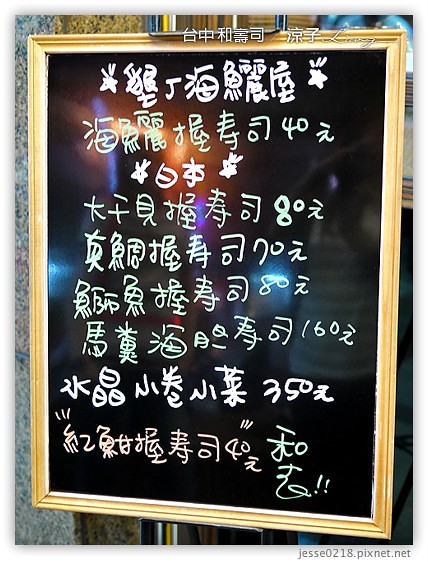 台中 和壽司 涼子 Liang
墾丁海鱺屋
海鱺握寿司40元
日本
大干貝握寿司80元
真鯛握寿司70元
鰤魚握寿司80元
馬糞海胆寿司160元
水晶小卷小菜 350元
紅魽握寿司40元
和
志!!
jesse0218.pixnet.net